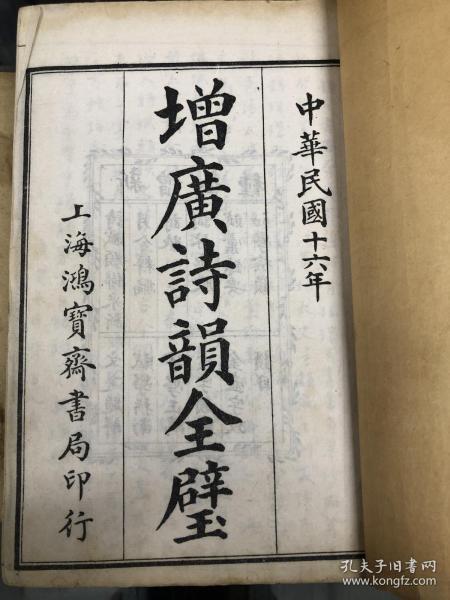 中華民國十六年
增廣詩韻全璧
上海鴻寶齋書局印行
孔夫子旧书网
www.kongfz.com